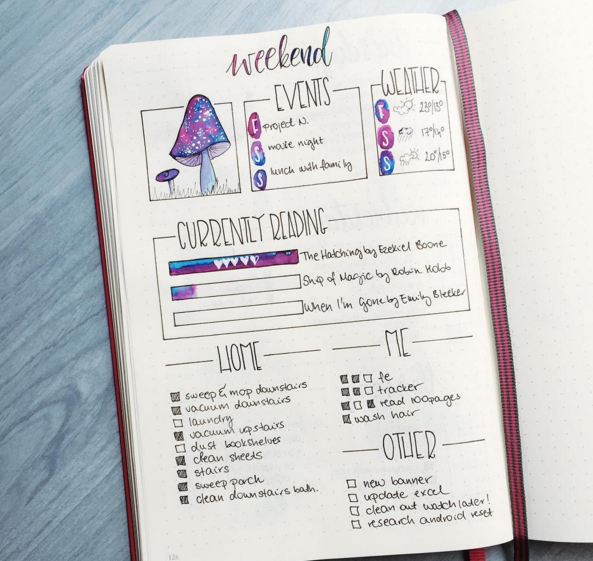 weekend
EVENTS
F project N.
S movie night
S lunch with family
WEATHER
F 23°/13°
S 17°/14°
S 20°/15°
CURRENTLY READING
The Hatching by Ezekiel Boone
Ship of Magic by Robin Hobb
When I'm Gone by Emily Bleeker
HOME
sweep & mop downstairs
vacuum downstairs
laundry
vacuum upstairs
dust bookshelves
clean sheets
stairs
sweep porch
clean downstairs bath.
ME
fe
tracker
read 100pages
wash hair
OTHER
new banner
update excel
clean out watch later!
research android reset